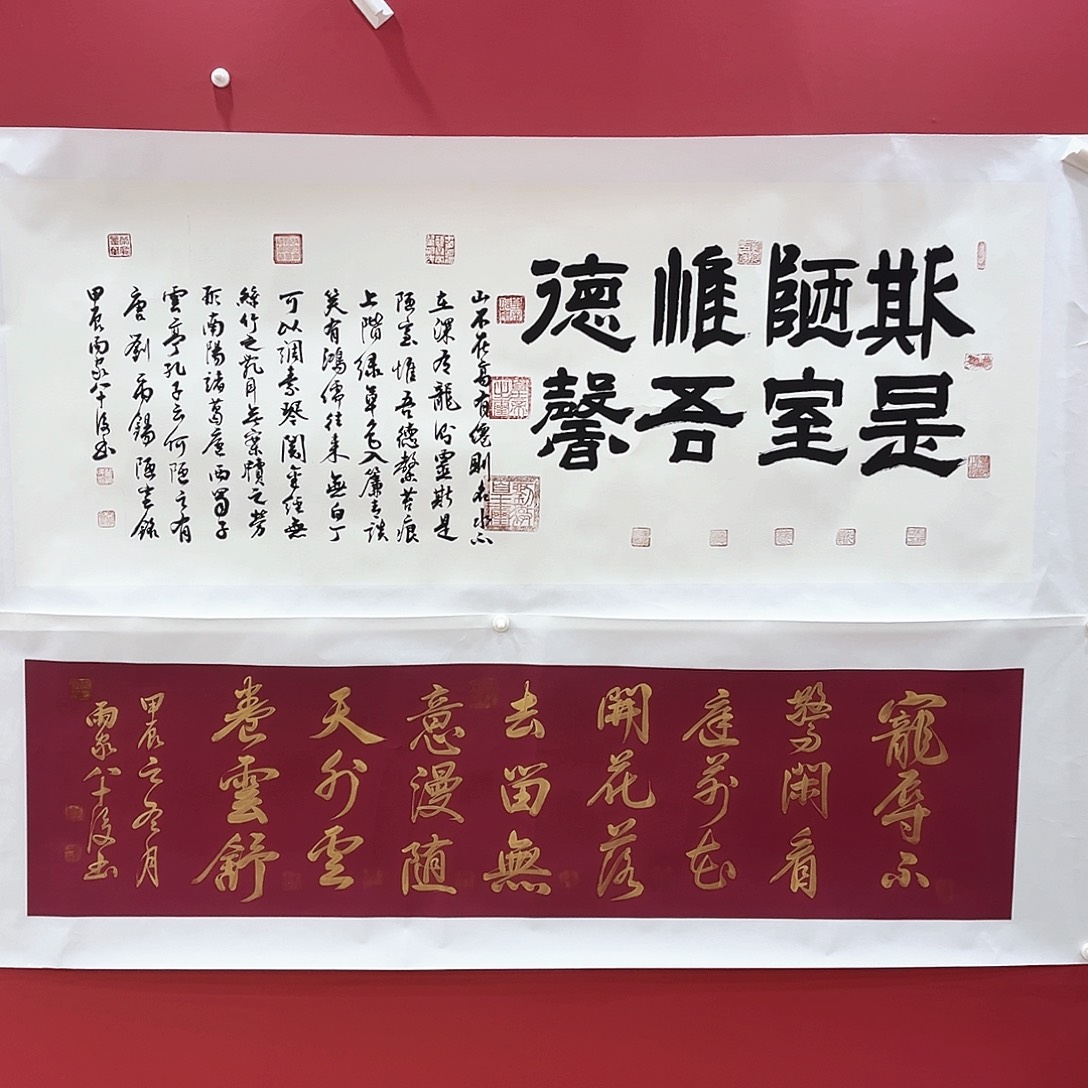 斯是
陋室
惟吾
德馨
山不在高有僊則名水不
在深有龍則靈斯是
陋室惟吾德馨苔痕
上階綠草色入簾青談
笑有鴻儒往來無白丁
可以調素琴閱金經無
絲竹之亂耳無案牘之勞
形南陽諸葛廬西蜀子
雲亭孔子云何陋之有
唐劉禹錫陋室銘
甲辰雨泉八十後書
寵辱不
驚閑看
庭前花
開花落
去留無
意漫随
天外雲
卷雲舒
甲辰之冬月
雨泉八十後書